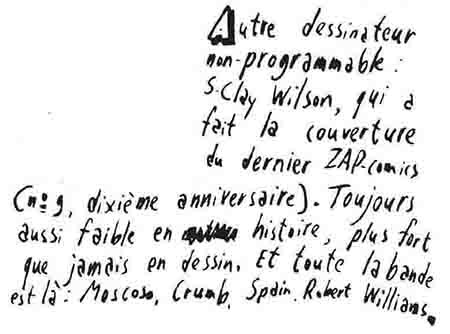 Autre dessinateur
non-programmable :
S. Clay Wilson, qui a
fait la couverture
du dernier ZAP-comics
(nº 9, dixième anniversaire). Toujours
aussi faible en histoire, plus fort
que jamais en dessin. Et toute la bande
est là : Moscoso, Crumb, Spain, Robert Williams.